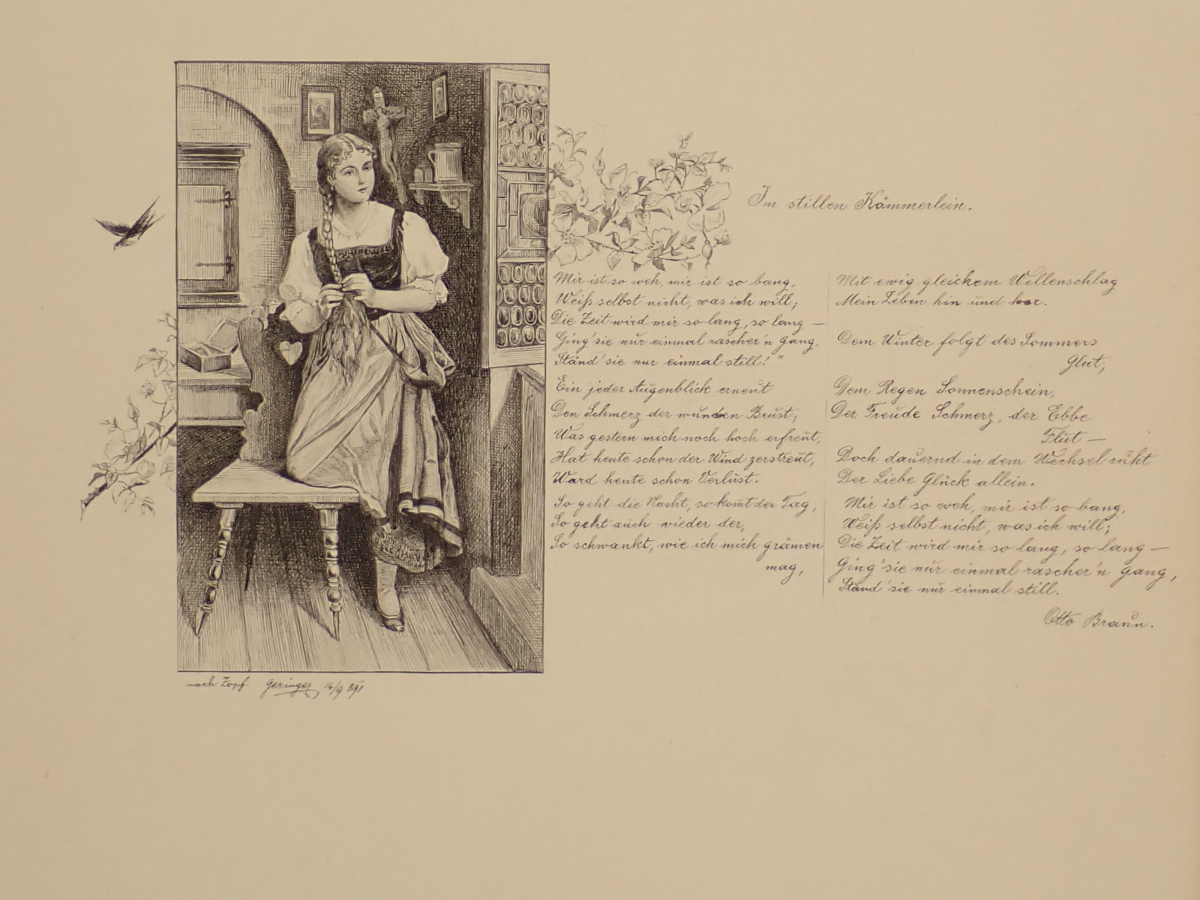 Im stillen Kämmerlein.
Mir ist so weh, mir ist so bang,
Weiß selbst nicht, was ich will;
Die Zeit wird mir so lang, so lang —
Ging' sie nur einmal rascher'n Gang,
Ständ' sie nur einmal still!
Ein jeder Augenblick erneut
Den Schmerz der wunden Brust;
Was gestern mich noch hoch erfreut,
Hat heute schon der Wind zerstreut,
Ward heute schon Verlust.
So geht die Nacht, so komt der Tag,
So geht auch wieder der,
So schwankt, wie ich mich grämen
mag,
Mit ewig gleichem Wellenschlag
Mein Leben hin und her.
Dem Winter folgt des Sommers
Glut,
Dem Regen Sonnenschein,
Der Freude Schmerz, der Ebbe
Flut —
Doch dauernd in dem Wechsel ruht
Der Liebe Glück allein.
Mir ist so weh, mir ist so bang,
Weiß selbst nicht, was ich will;
Die Zeit wird mir so lang, so lang —
Ging' sie nur einmal rascher'n Gang,
Ständ' sie nur einmal still.
Otto Braun.
nach Zopf Geringer, 14/9 891